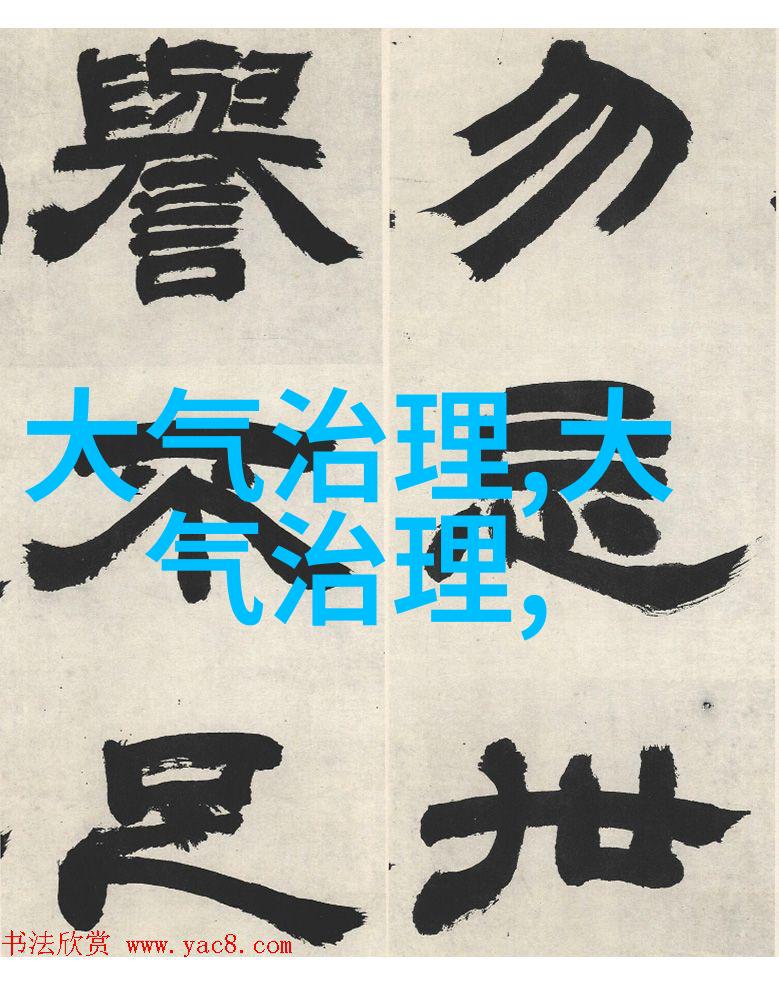 勿忘世
譽不足
大气治理,大
气治理,
书法欣赏 www.yac8.com